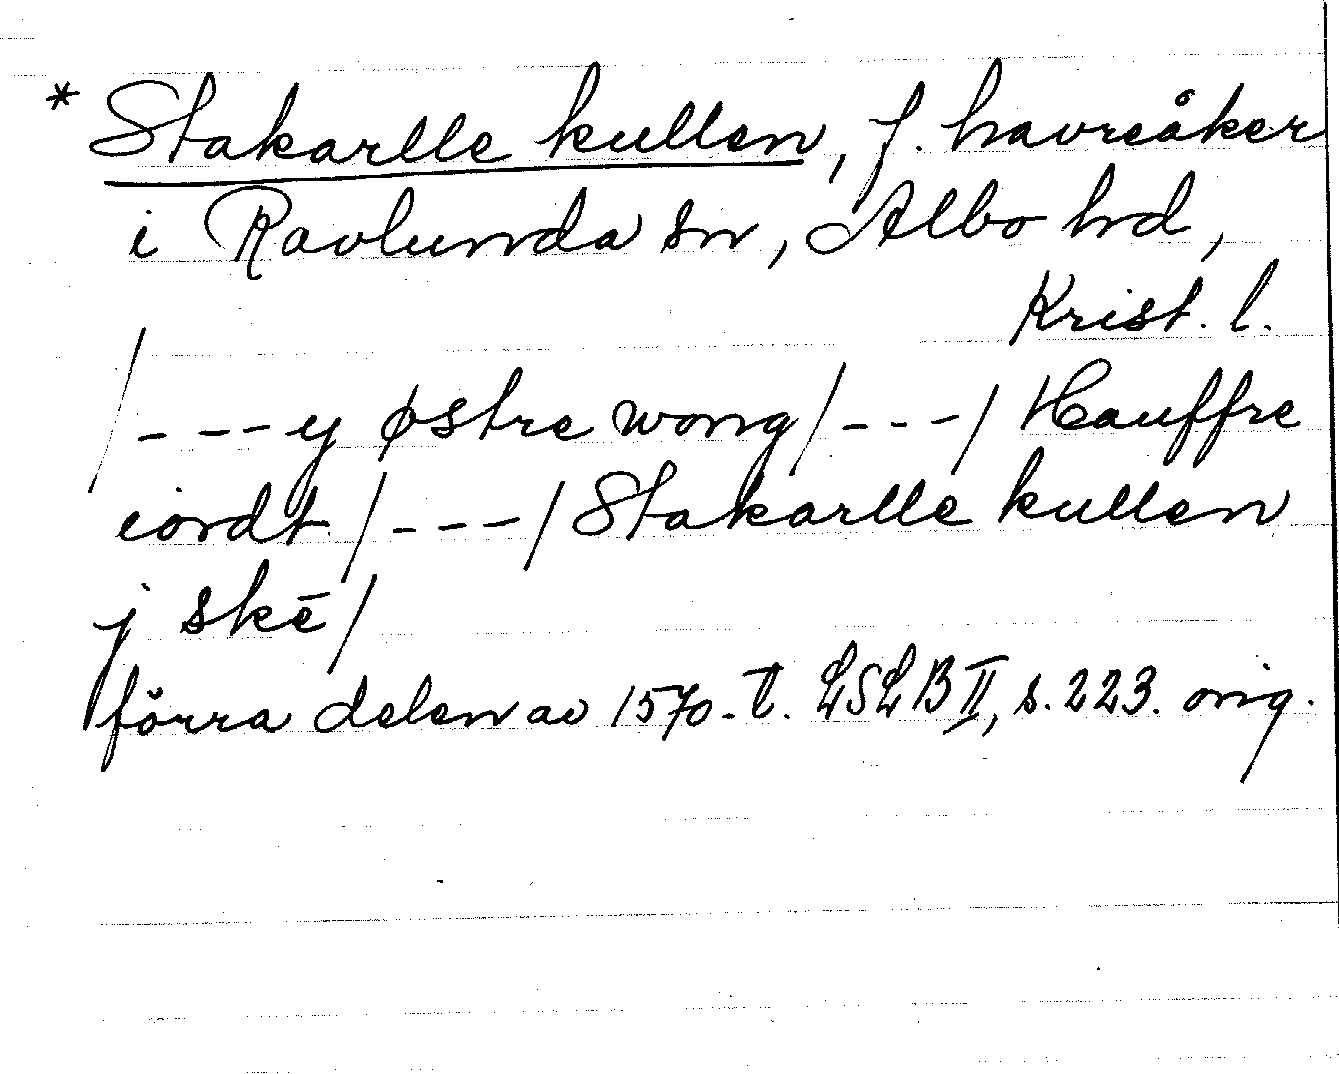 * Stakarlle kullen, f. havreåker
i Ravlunda sn, Albo hd,
Krist. l.
/---y østre wong/---/Hauffre
iordt/---/Stakarlle kullen
j skē/
förra delen av 1570-t. LSLB II, s. 223. orig.